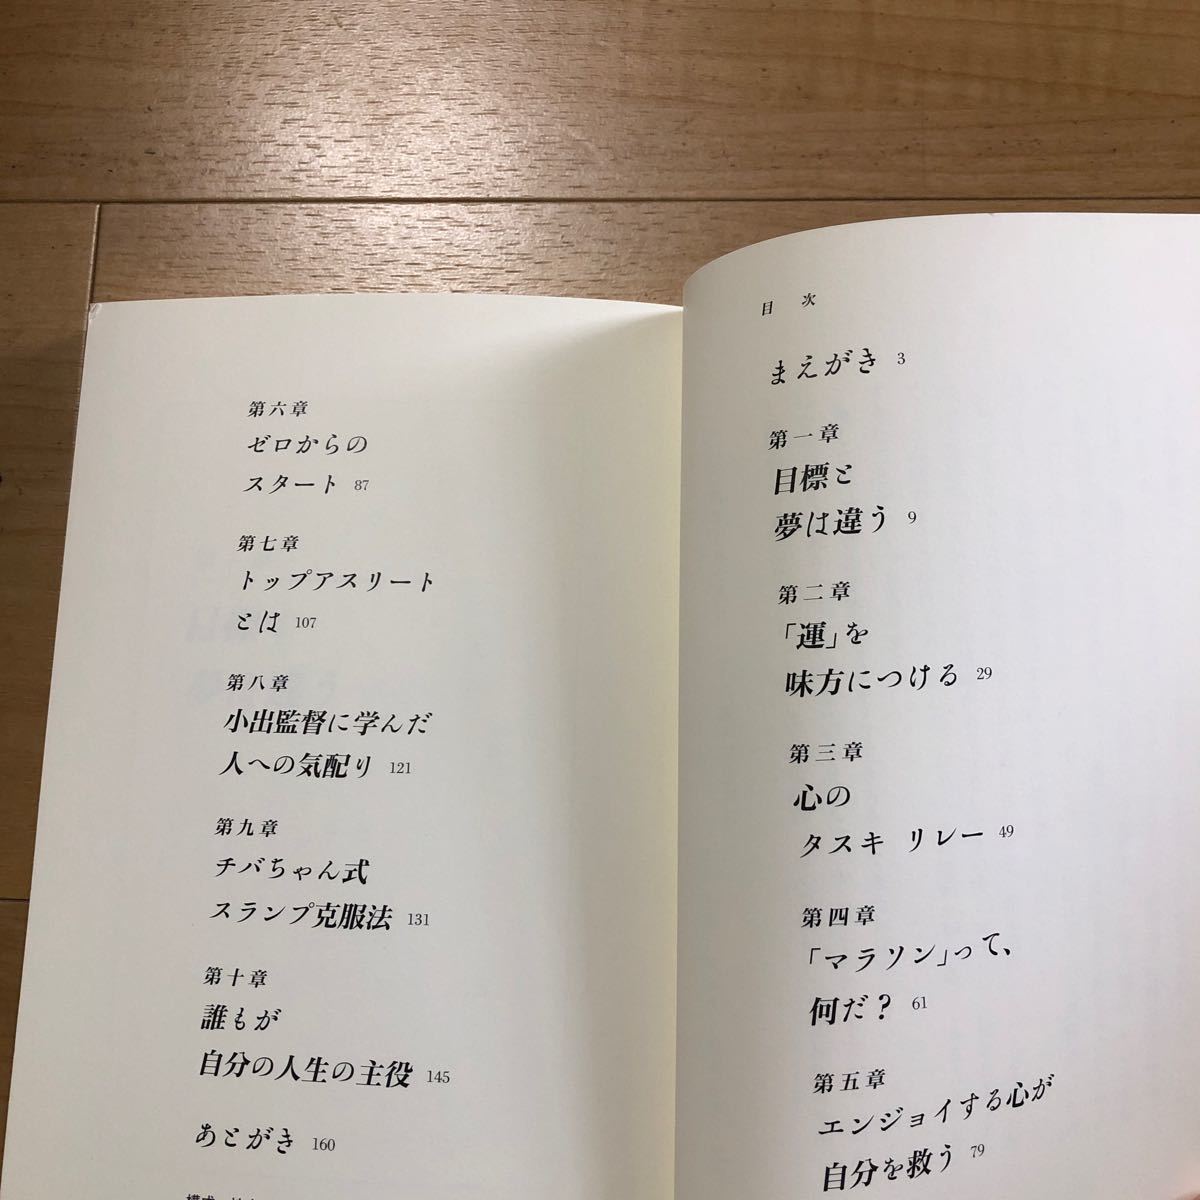 目次
まえがき 3
第一章
目標と
夢は違う 9
第二章
「運」を
味方につける 29
第三章
心の
タスキ リレー 49
第四章
「マラソン」って、
何だ? 61
第五章
エンジョイする心が
自分を救う 79
第六章
ゼロからの
スタート 87
第七章
トップアスリート
とは 107
第八章
小出監督に学んだ
人への気配り 121
第九章
チバちゃん式
スランプ克服法 131
第十章
誰もが
自分の人生の主役 145
あとがき 160